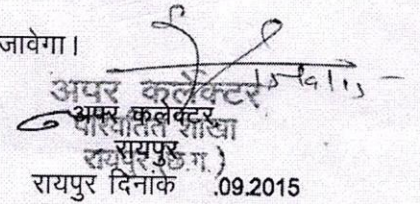 जावेगा।
अपर कलेक्टर
अपर कलेक्टर
परिवर्तित शाखा
रायपुर
रायपुर (छ.ग.)
रायपुर दिनांक .09.2015